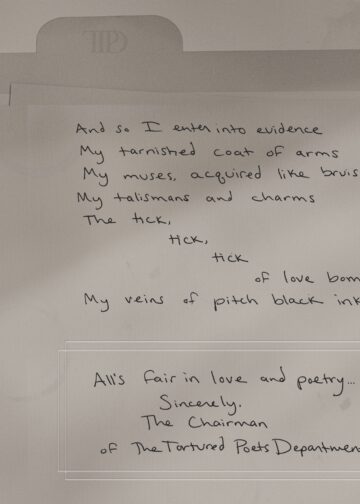 And so I enter into evidence
My tarnished coat of arms
My muses, acquired like bruis
My talismans and charms
The tick,
tick,
tick
of love bom
My veins of pitch black ink
All's fair in love and poetry...
Sincerely,
The Chairman
of The Tortured Poets Departmen